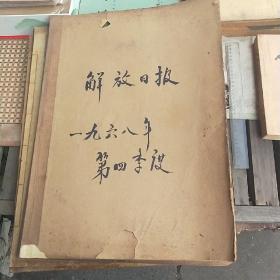 解放日报
一九六八年
第四季度